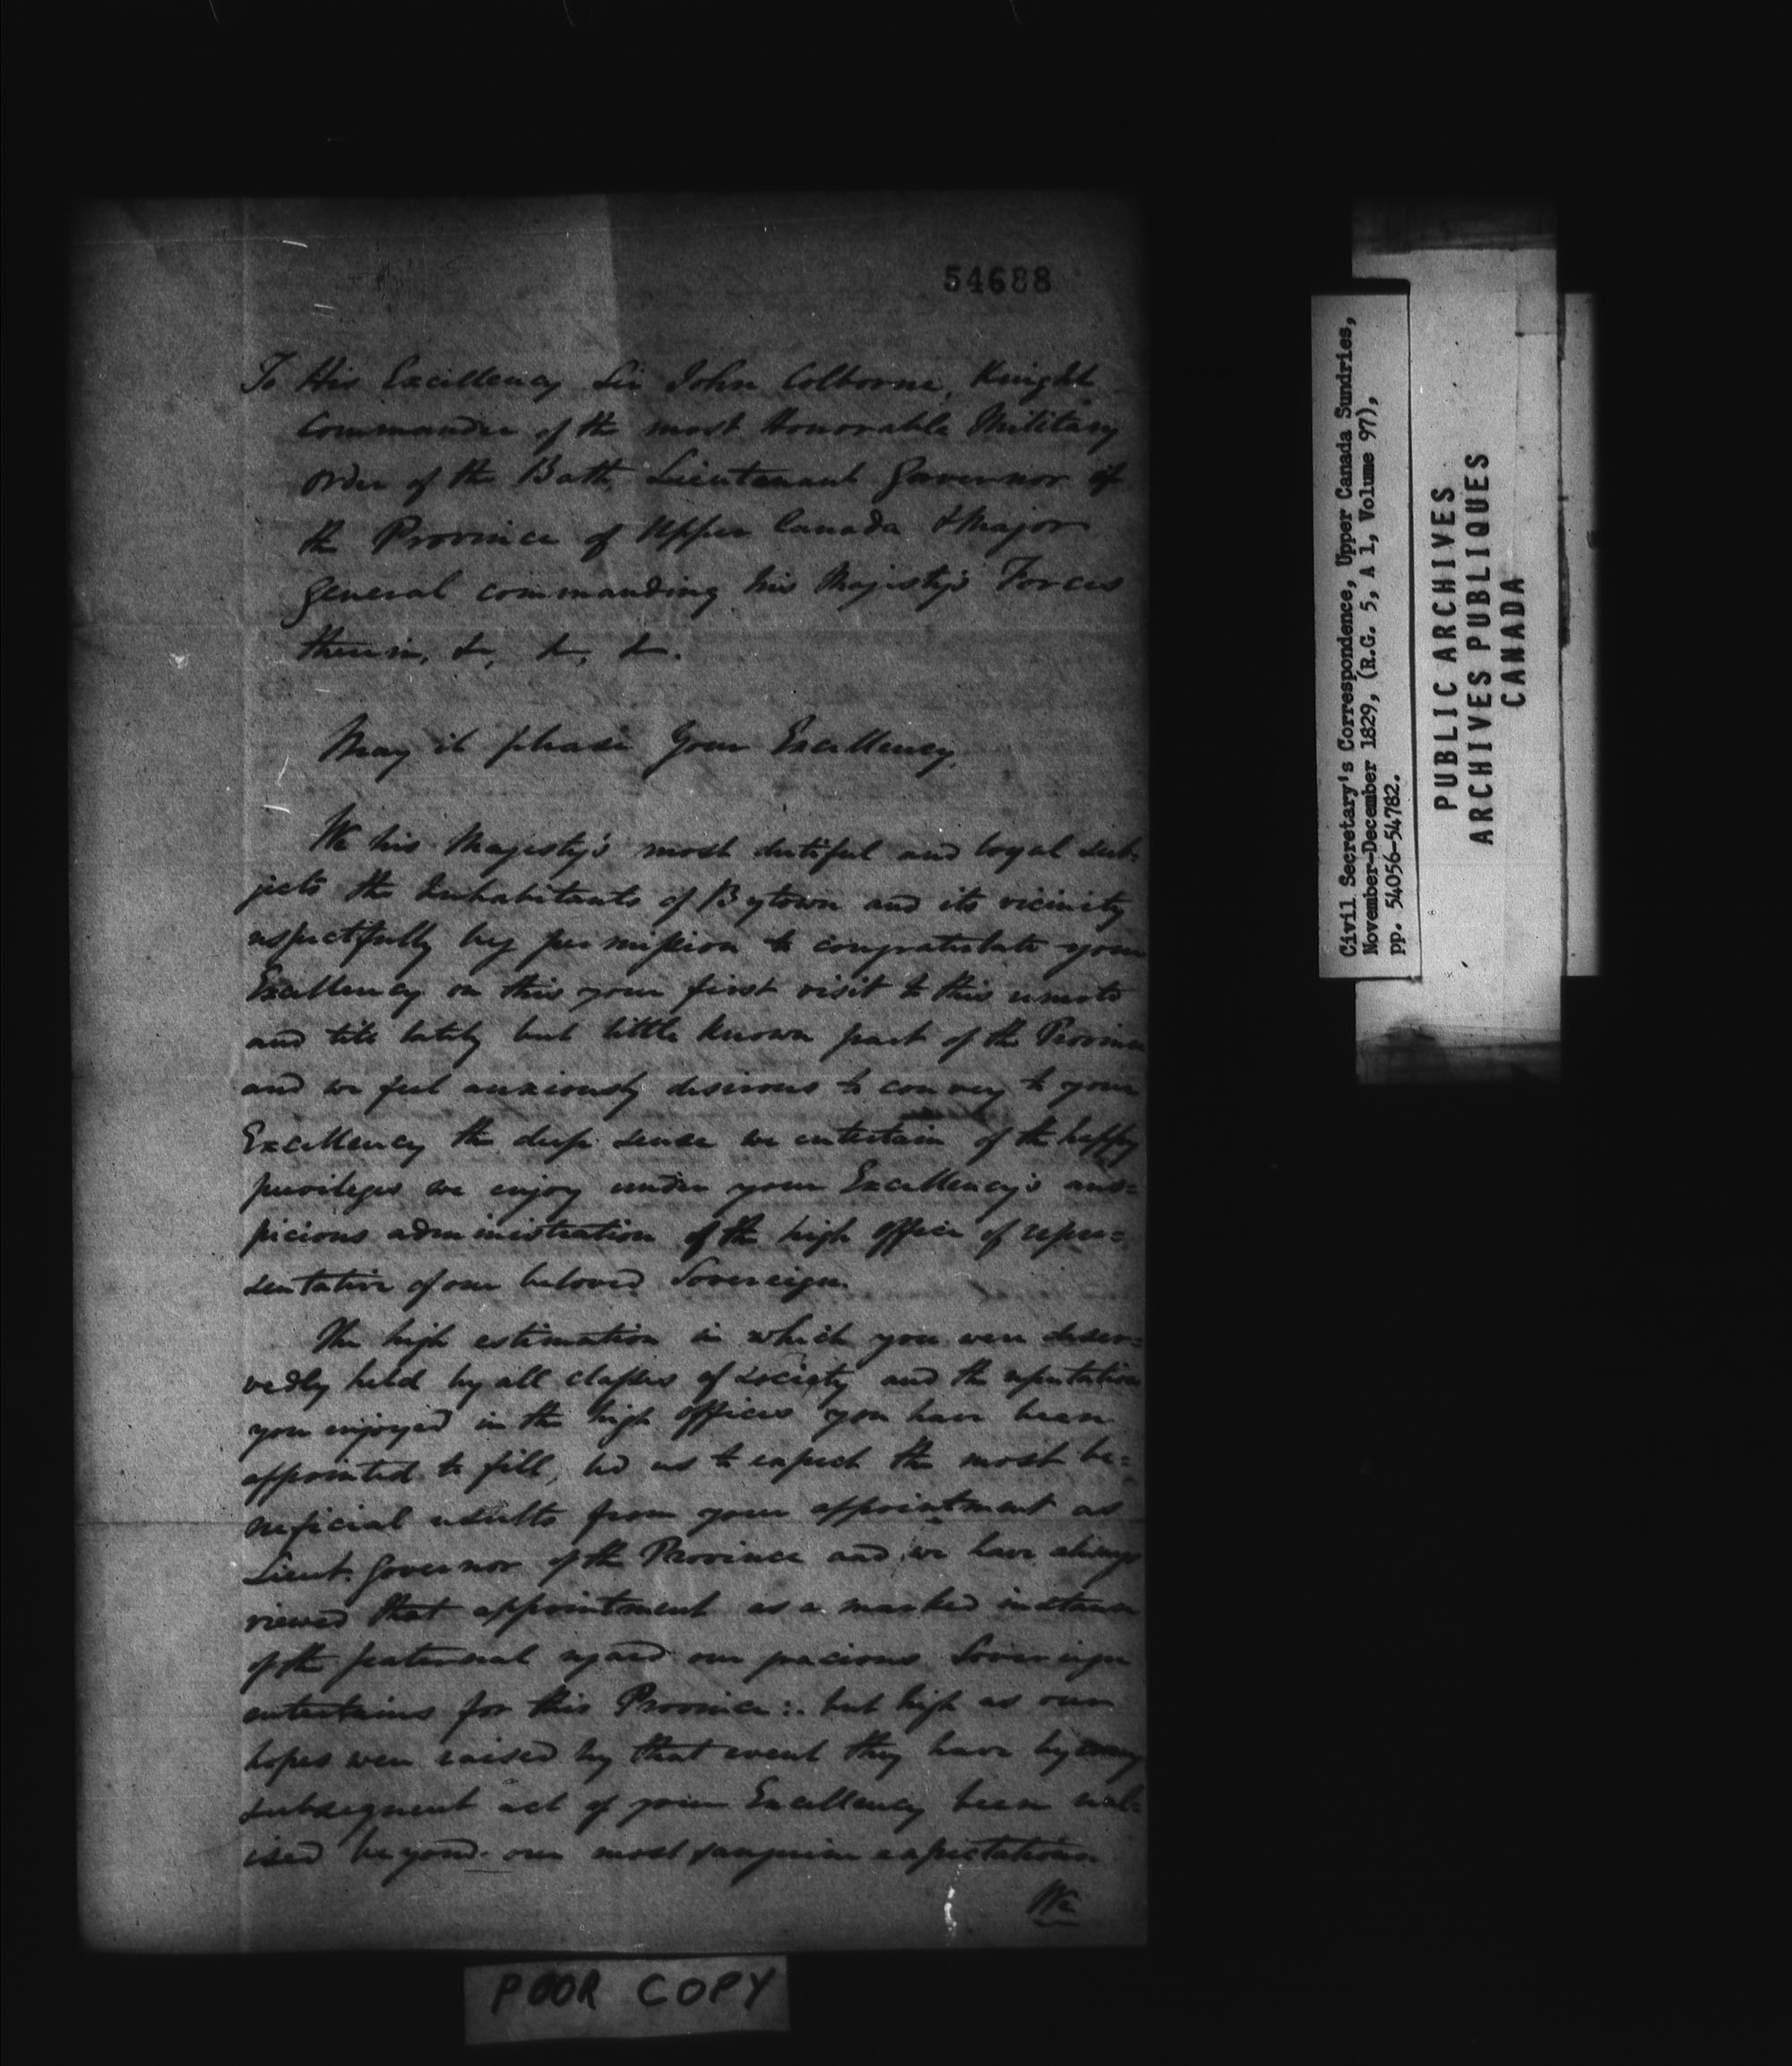 54688
To His Excellency Sir John Colborne, Knight
Commander of the most Honorable Military
Order of the Bath, Lieutenant Governor of
the Province of Upper Canada & Major
General commanding his Majesty's Forces
therein, &, &, &.
May it please Your Excellency,
We his Majesty's most dutiful and loyal sub-
jects the Inhabitants of Bytown and its vicinity
respectfully beg permission to congratulate your
Excellency on this your first visit to this remote
and till lately but little known part of the Province
and we feel anxiously desirous to convey to your
Excellency the deep sense we entertain of the happy
privileges we enjoy under your Excellency's aus=
picious administration of the high office of repre=
sentative of our beloved Sovereign.
The high estimation in which you were deser=
vedly held by all classes of society and the reputation
you enjoyed in the high offices you have been
appointed to fill, led us to expect the most be=
neficial results from your appointment as
Lieut. Governor of the Province and we have always
viewed that appointment as a marked instance
of the paternal regard our gracious Sovereign
entertains for this Province: but high as our
hopes were raised by that event they have by every
subsequent act of your Excellency been real=
ised beyond our most sanguine expectations.
We
POOR COPY
Civil Secretary's Correspondence, Upper Canada Sundries,
November-December 1829, (R.G. 5, A 1, Volume 97),
pp. 54056-54782.
PUBLIC ARCHIVES
ARCHIVES PUBLIQUES
CANADA